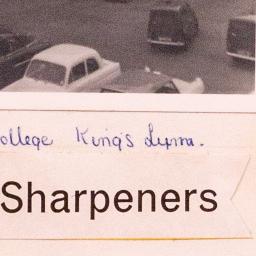 ollege King's Lynn.
Sharpeners